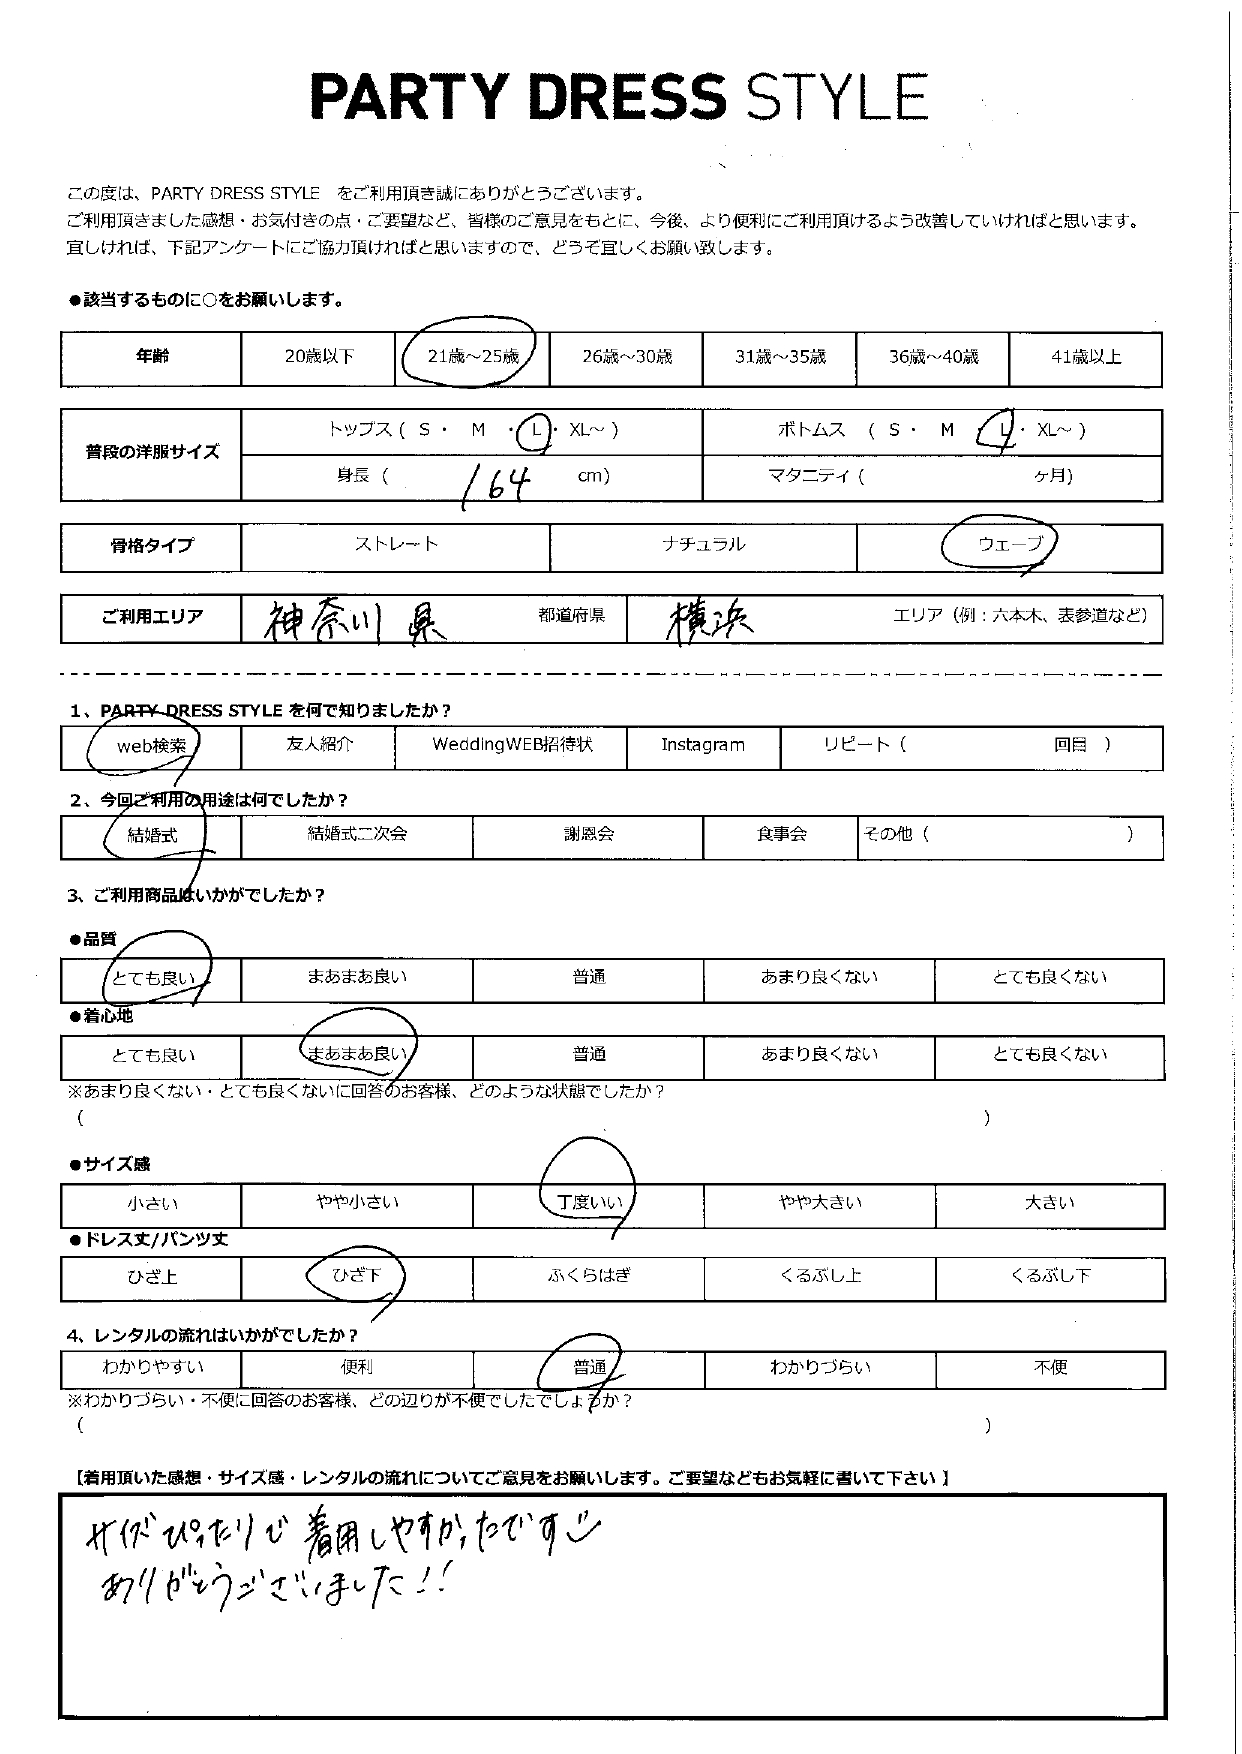 PARTY DRESS STYLE
この度は、PARTY DRESS STYLE をご利用頂き誠にありがとうございます。
ご利用頂きました感想・お気付きの点・ご要望など、皆様のご意見をもとに、今後、より便利にご利用頂けるよう改善していければと思います。
宜しければ、下記アンケートにご協力頂ければと思いますので、どうぞ宜しくお願い致します。
●該当するものに○をお願いします。
年齢 20歳以下 21歳～25歳 26歳～30歳 31歳～35歳 36歳～40歳 41歳以上
普段の洋服サイズ トップス ( S ・ M ・ L ・ XL～ ) ボトムス ( S ・ M ・ L ・ XL～ )
身長 ( 164 cm) マタニティ ( ヶ月)
骨格タイプ ストレート ナチュラル ウェーブ
ご利用エリア 神奈川県 都道府県 横浜 エリア（例：六本木、表参道など）
1、PARTY DRESS STYLE を何で知りましたか？
web検索 友人紹介 WeddingWEB招待状 Instagram リピート ( 回目 )
2、今回ご利用の用途は何でしたか？
結婚式 結婚式二次会 謝恩会 食事会 その他 ( )
3、ご利用商品はいかがでしたか？
●品質
とても良い まあまあ良い 普通 あまり良くない とても良くない
●着心地
とても良い まあまあ良い 普通 あまり良くない とても良くない
※あまり良くない・とても良くないに回答のお客様、どのような状態でしたか？
( )
●サイズ感
小さい やや小さい 丁度いい やや大きい 大きい
●ドレス丈/パンツ丈
ひざ上 ひざ下 ふくらはぎ くるぶし上 くるぶし下
4、レンタルの流れはいかがでしたか？
わかりやすい 便利 普通 わかりづらい 不便
※わかりづらい・不便に回答のお客様、どの辺りが不便でしたでしょうか？
( )
【着用頂いた感想・サイズ感・レンタルの流れについてご意見をお願いします。ご要望などもお気軽に書いて下さい 】
サイズぴったりで着用しやすかったです
ありがとうございました!!